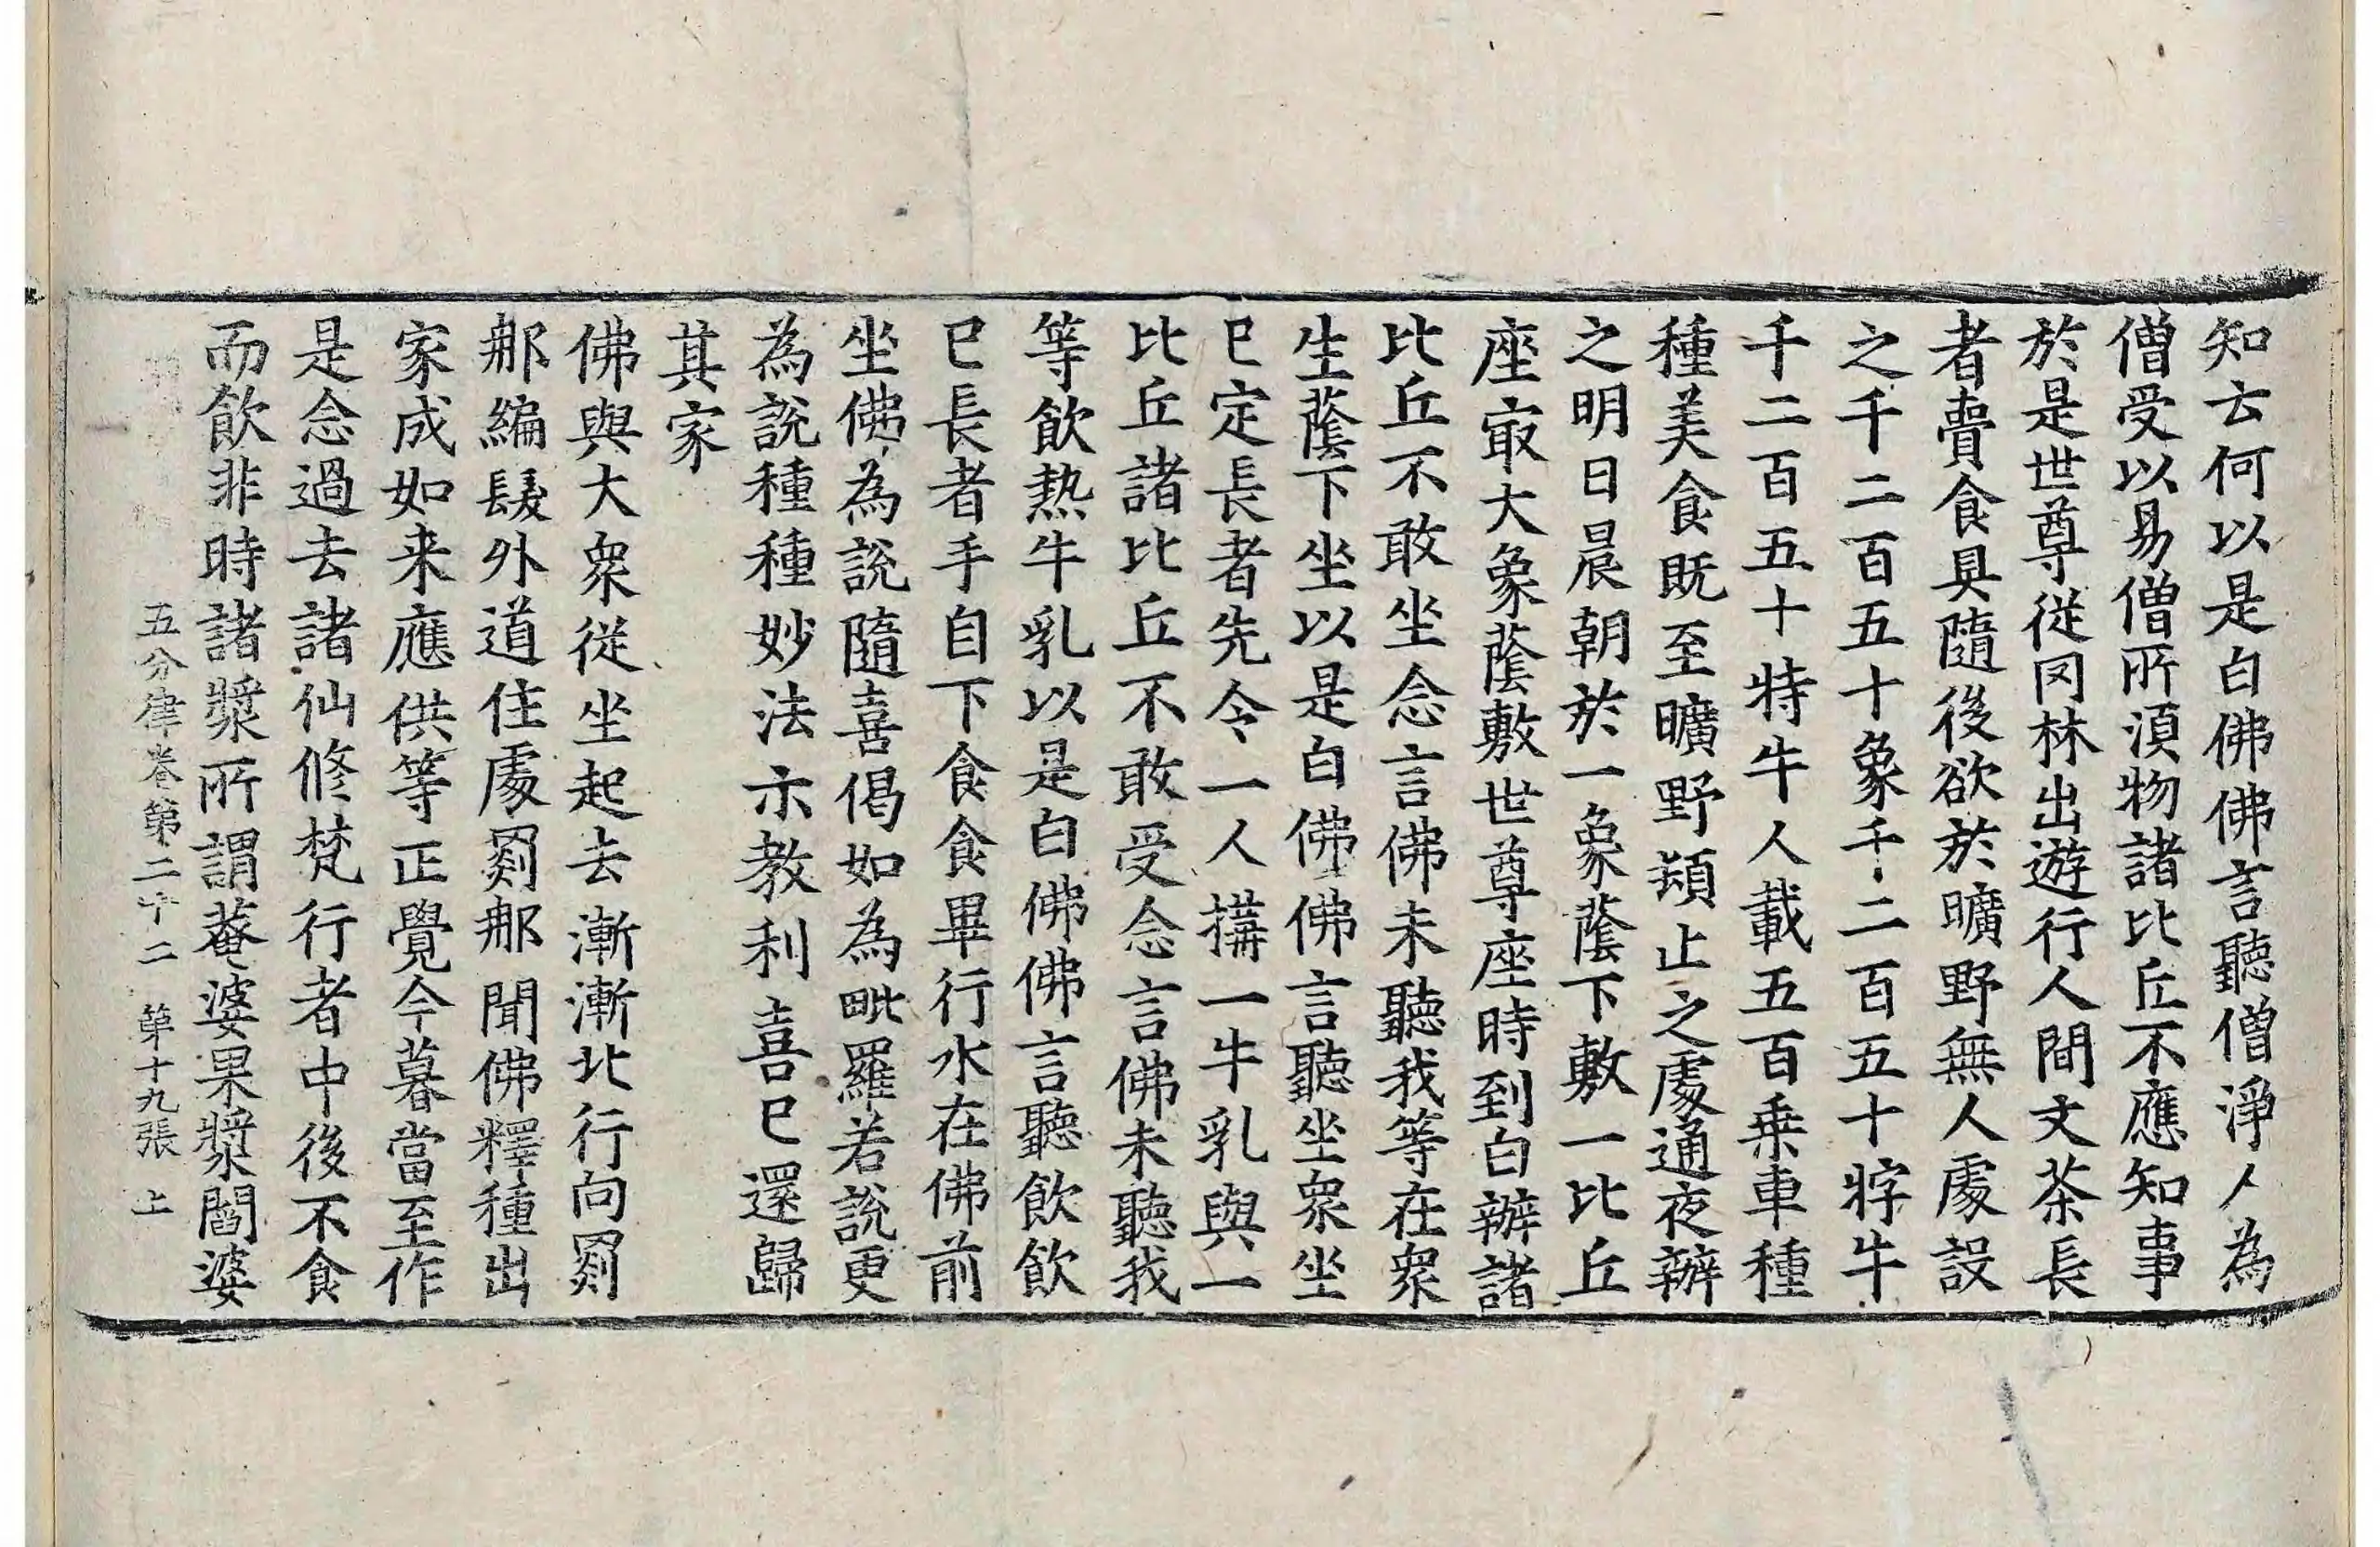 知去何以是白佛佛言聽僧淨人為
僧受以易僧所湏物諸比丘不應知事
於是世尊従罔林出遊行人間文荼長
者賷食具隨後欲於曠野無人處設
之千二百五十象千二百五十牸牛
千二百五十特牛人載五百乗車種
種美食既至曠野頓止之處通夜辦
之明日晨朝於一象蔭下敷一比丘
座㝡大象蔭敷世尊座時到白辦諸
比丘不敢坐念言佛未聽我等在衆
生蔭下坐以是白佛佛言聽坐衆坐
已定長者先令一人搆一牛乳與一
比丘諸比丘不敢受念言佛未聽我
等飲熱牛乳以是白佛佛言聽飲飲
已長者手自下食食畢行水在佛前
坐佛為說隨喜偈如為毗羅若說更
為說種種妙法示教利喜已還歸
其家
佛與大衆従坐起去漸漸北行向罽
那編髮外道住處罽那聞佛釋種出
家成如来應供等正覺今暮當至作
是念過去諸仙修梵行者中後不食
而飲非時諸漿所謂菴婆果漿閻婆
五分律卷第二十二 第十九張 上